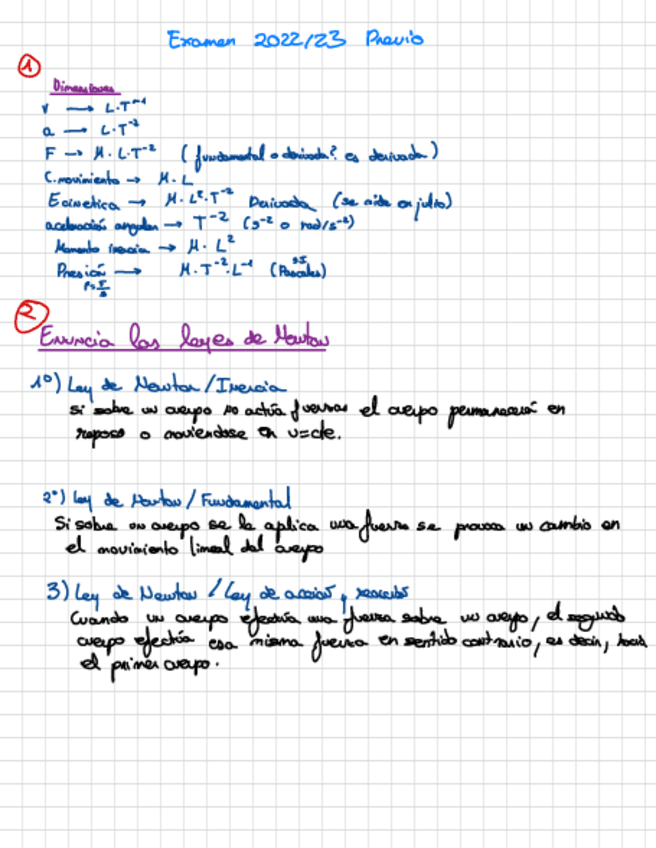 Examen 2022/23 Previo
1
Dimensiones
v → L·T⁻¹
a → L·T⁻²
F → M·L·T⁻² (fundamental o derivada? es derivada)
C.movimiento → M·L
Ecinetica → M·L²·T⁻² Derivada (se mide en julio)
aceleración angular → T⁻² (s⁻² o rad/s⁻²)
Momento inercia → M·L²
Presión → M·T⁻²·L⁻¹ (Pascales)
SI
2
Enuncia las leyes de Newton
1º) Ley de Newton / Inercia
Si sobre un cuerpo no actúa fuerzas el cuerpo permanecerá en
reposo o moviendose en v=cte.
2º) Ley de Newton / Fundamental
Si sobre un cuerpo se le aplica una fuerza se provoca un cambio en
el movimiento lineal del cuerpo
3) Ley de Newton / Ley de acción y reacción
Cuando un cuerpo efectúa una fuerza sobre un cuerpo, el segundo
cuerpo efectúa esa misma fuerza en sentido contrario, es decir, hacia
el primer cuerpo.